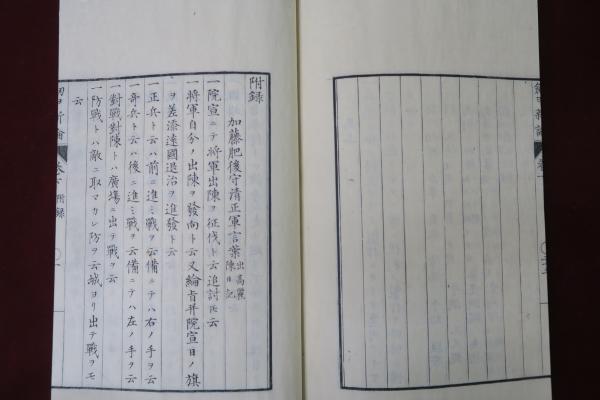 附録
加藤肥後守清正軍言葉 出高麗陳日記
一院宣ニテ將軍出陳ヲ征伐ト云追討氏云
一將軍自分ノ出陳ヲ發向ト云又綸旨并院宣日ノ旗
ヲ差添遠國退治ヲ進發ト云
一正兵ト云ハ前ニ進ミ戰ヲ云備ニテハ右ノ手ヲ云
一奇兵ト云ハ後ニ進ミ戰ヲ云備ニテハ左ノ手ヲ云
一對戰對陳トハ廣場ニ出テ戰ヲ云
一防戰トハ敵ニ取マカレ防ヲ云城ヨリ出テ戰ヲモ
云
卷下 附録 一